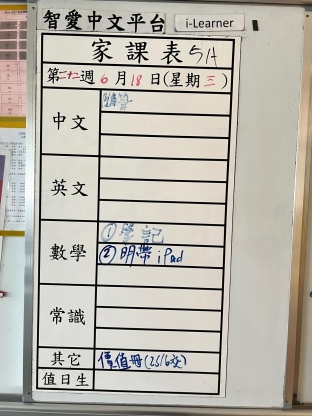 智愛中文平台
i-Learner
家課表 5A
第二十二週 6 月 18 日(星期 三 )
中文
英文
數學
① 學記
② 明帶 iPad
常識
其它
價值冊(25/6交)
值日生